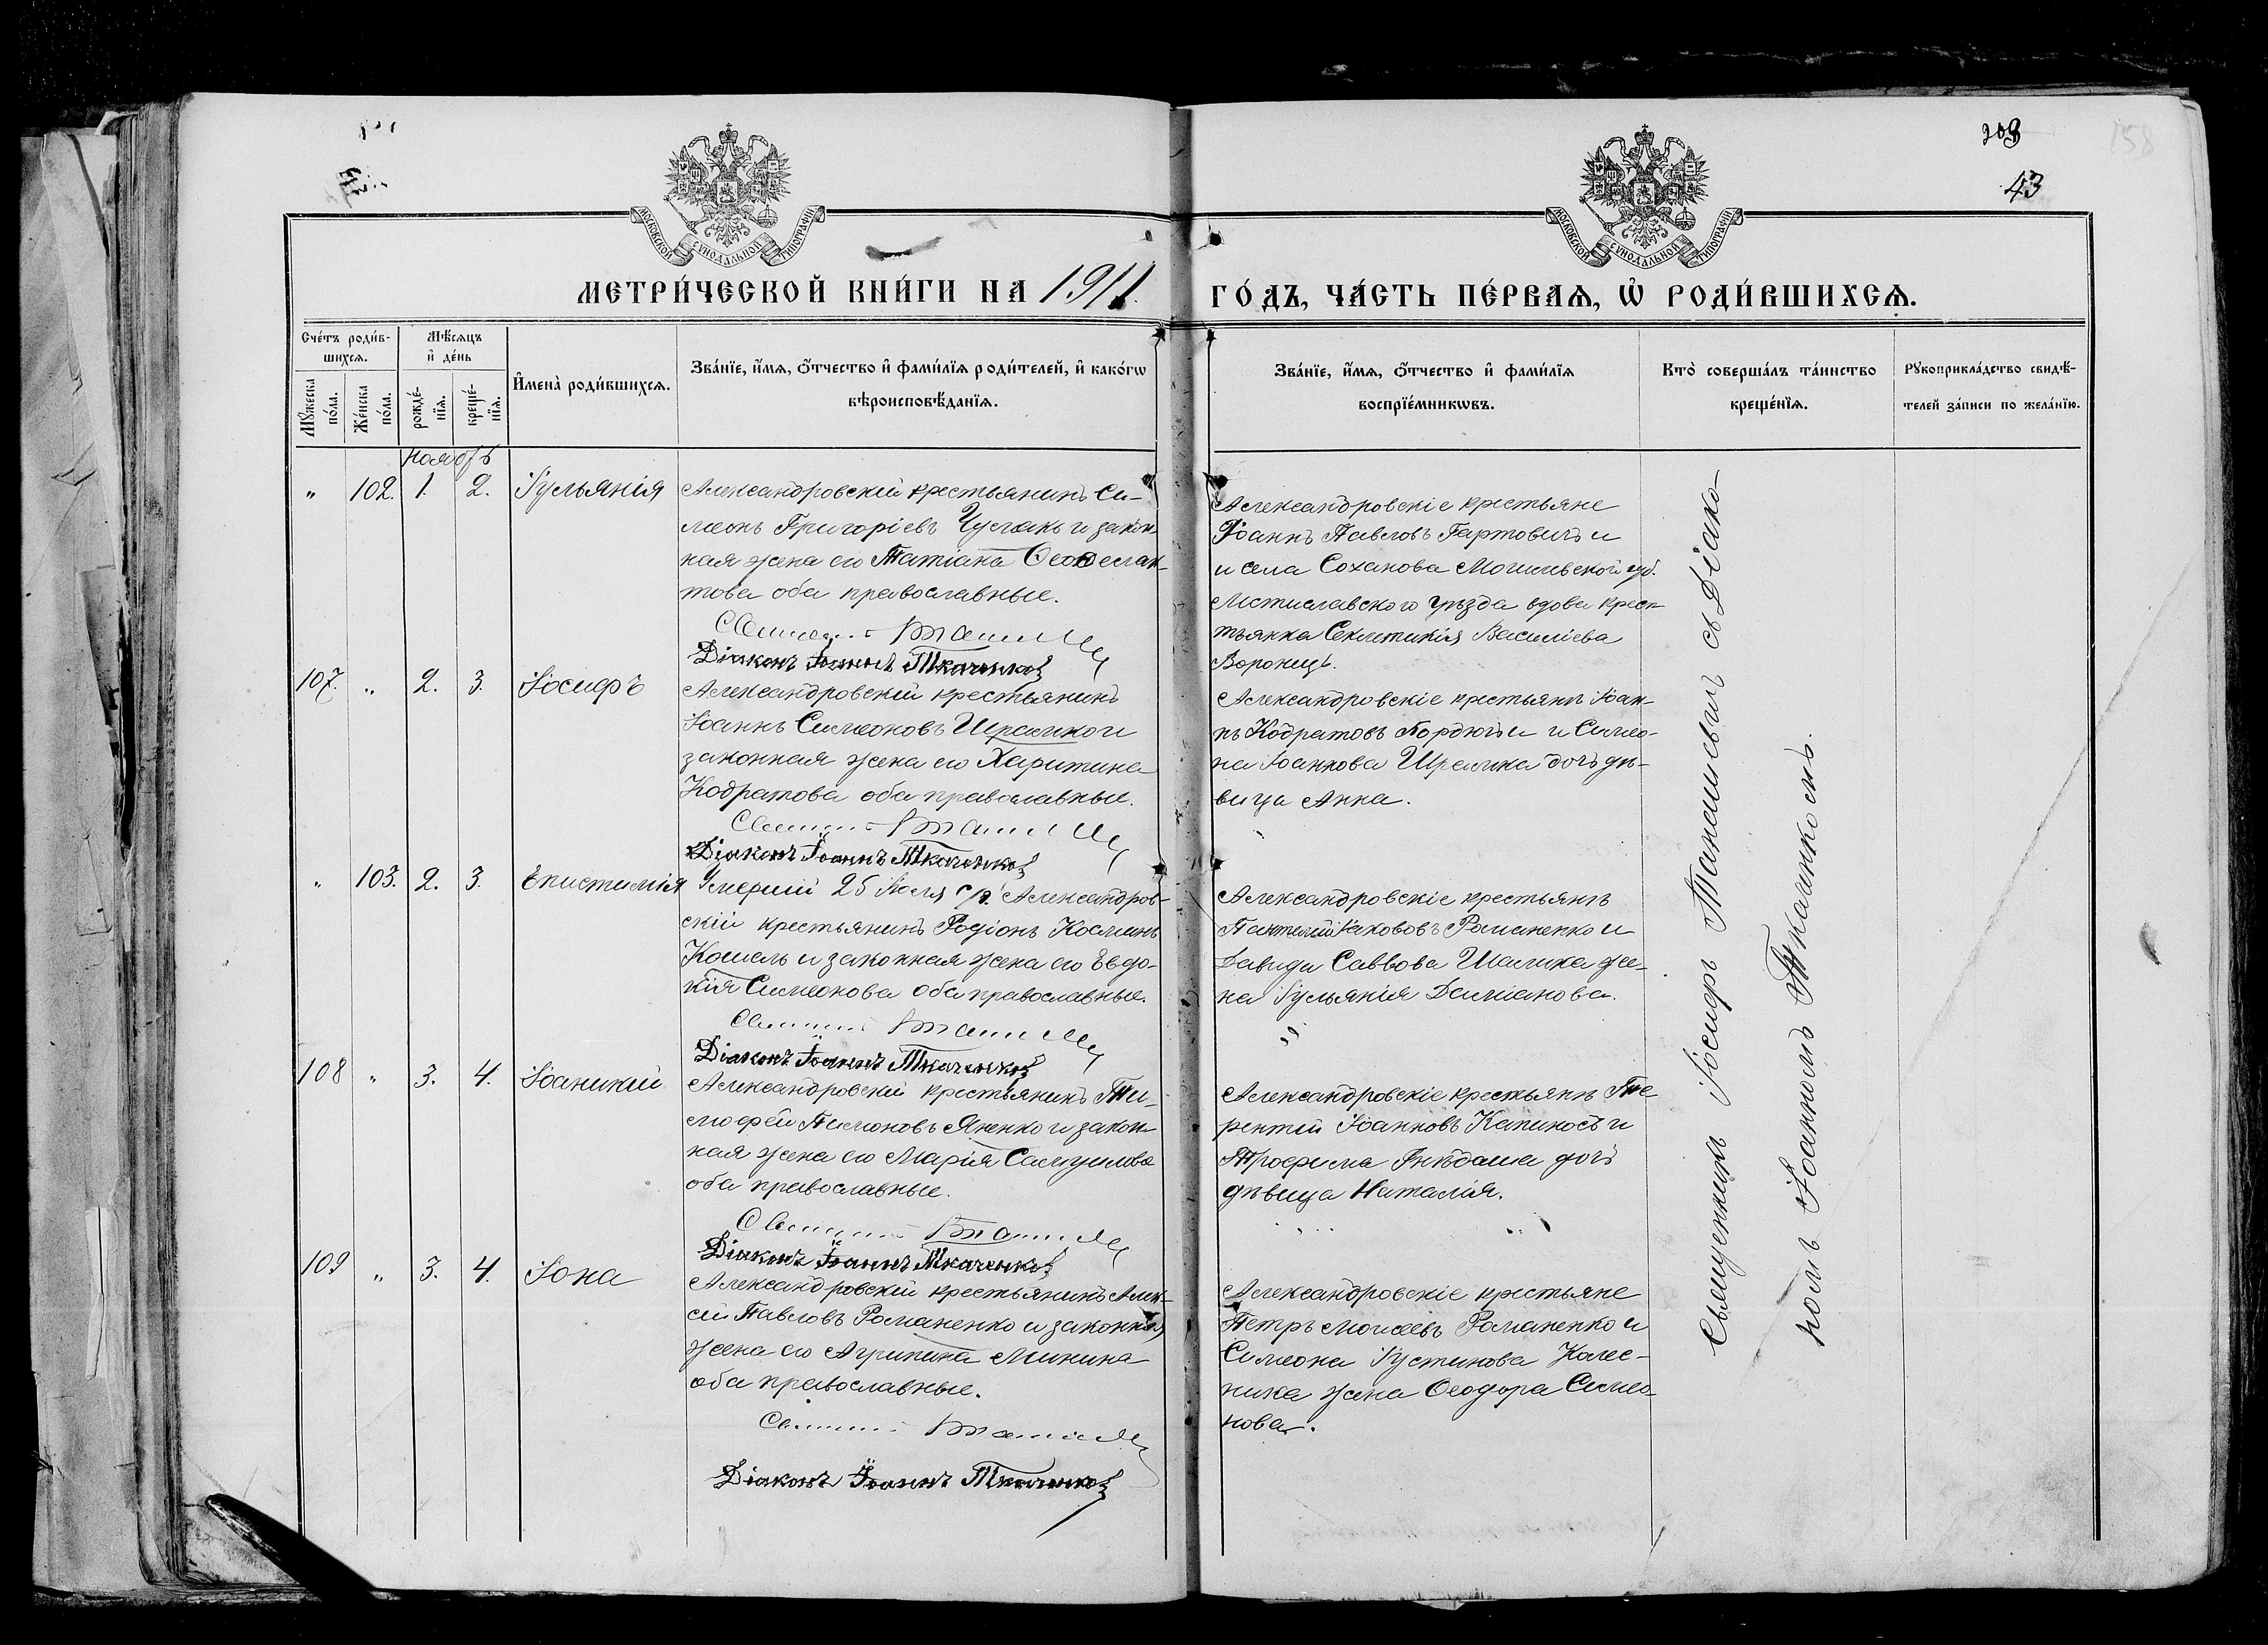 203
158
43
МОСКОВСКОЙ СѴНОДАЛЬНОЙ ТИПОГРАФІИ
МОСКОВСКОЙ СѴНОДАЛЬНОЙ ТИПОГРАФІИ
МЕТРИ́ЧЕСКОЙ КНИ́ГИ НА 1911
ГО́ДЪ, ЧА́СТЬ ПЕ́РВАѦ, Ѡ҆ РОДИ́ВШИХСѦ.
Сче́тъ роди́в-
шихсѧ.
Мꙋ́жеска
по́ла.
Же́нска
по́ла.
Мѣ́сѧцъ
и҆ де́нь
рожде́-
нїѧ.
креще́-
нїѧ.
И҆мена̀ роди́вшихсѧ.
Зва́нїе, и҆́мѧ, ѻ҆́тчество и҆ фами́лїѧ роди́телей, и҆ како́гѡ
вѣроисповѣ́данїѧ.
Зва́нїе, и҆́мѧ, ѻ҆́тчество и҆ фами́лїѧ
воспрїе́мникѡвъ.
Кто̀ соверша́лъ та́инство
креще́нїѧ.
Рꙋкоприкла́дство свидѣ́-
телей за́писи по жела́нїю.
Ноябрь
" 102. 1. 2. Іульянія
Александровскій крестьянинъ Си-
меонъ Григоріевъ Чусакъ и закон-
ная жена его Татіана
това оба православные.
Діаконъ Іоаннъ Ткаченко
Александровскіе крестьяне
Іоаннъ Павловъ Гартовичъ и
и села Соханова Могилевской губ.
Мстиславского уѣзда вдова крес-
тьянка Секлетикія Василіева
Воронецъ.
107. " 2. 3. Іосифъ
Александровскій крестьянинъ
Іоаннъ Симеоновъ Шрамко и
законная жена его Харитина
Кодратова оба православные.
Діаконъ Іоаннъ Ткаченко
Александровскіе крестьянъ Іоан-
нъ Кодратовъ и Симео-
на Іоаннова Шрамка дочь дѣ-
вица Анна.
" 103. 2. 3. Епистимія
Умершій 25 Іюля с/г. Александров-
скій крестьянинъ Родіонъ Косминъ
Кошель и законная жена его Евдо-
кія Симеонова оба православные.
Діаконъ Іоаннъ Ткаченко
Александровскіе крестьянъ
Романенко и
Давида Саввова Шалика же-
на Іульянія Даміанова.
108 " 3. 4. Іоаникій
Александровскій крестьянинъ Ти-
мофей Яненко и закон-
ная жена его Марія Самуилова
оба православные.
Діаконъ Іоаннъ Ткаченко
Александровскіе крестьянъ Те
рентій Іоанновъ Капиносъ и
Трофима Гнѣдаша дочь
дѣвица Наталія.
109 " 3. 4. Іона
Александровскій крестьянинъ Алек-
сій Павловъ Романенко и законная
жена его Агрипина Минина
оба православные.
Діаконъ Іоаннъ Ткаченко
Александровскіе крестьяне
Петръ Моисеевъ Романенко и
Симеона Іустинова Колес-
ника жена Ѳеодора Симео-
нова.
Священникъ Іосифъ съ Діако-
номъ Іоанномъ Ткаченкомъ.